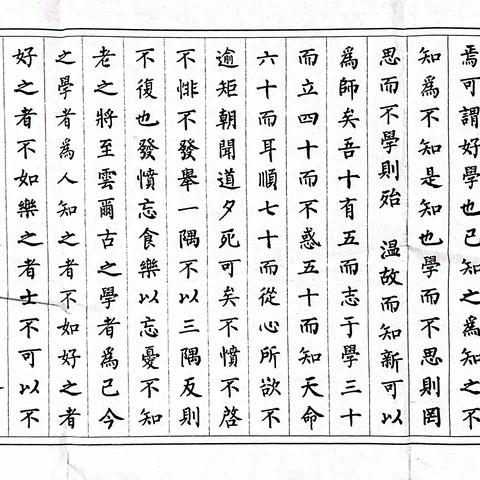 焉可謂好學也已知之為知之不
知為不知是知也學而不思則罔
思而不學則殆 溫故而知新可以
為師矣吾十有五而志于學三十
而立四十而不惑五十而知天命
六十而耳順七十而從心所欲不
逾矩朝聞道夕死可矣不憤不啓
不悱不發舉一隅不以三隅反則
不復也發憤忘食樂以忘憂不知
老之將至雲爾古之學者為己今
之學者為人知之者不如好之者
好之者不如樂之者士不可以不